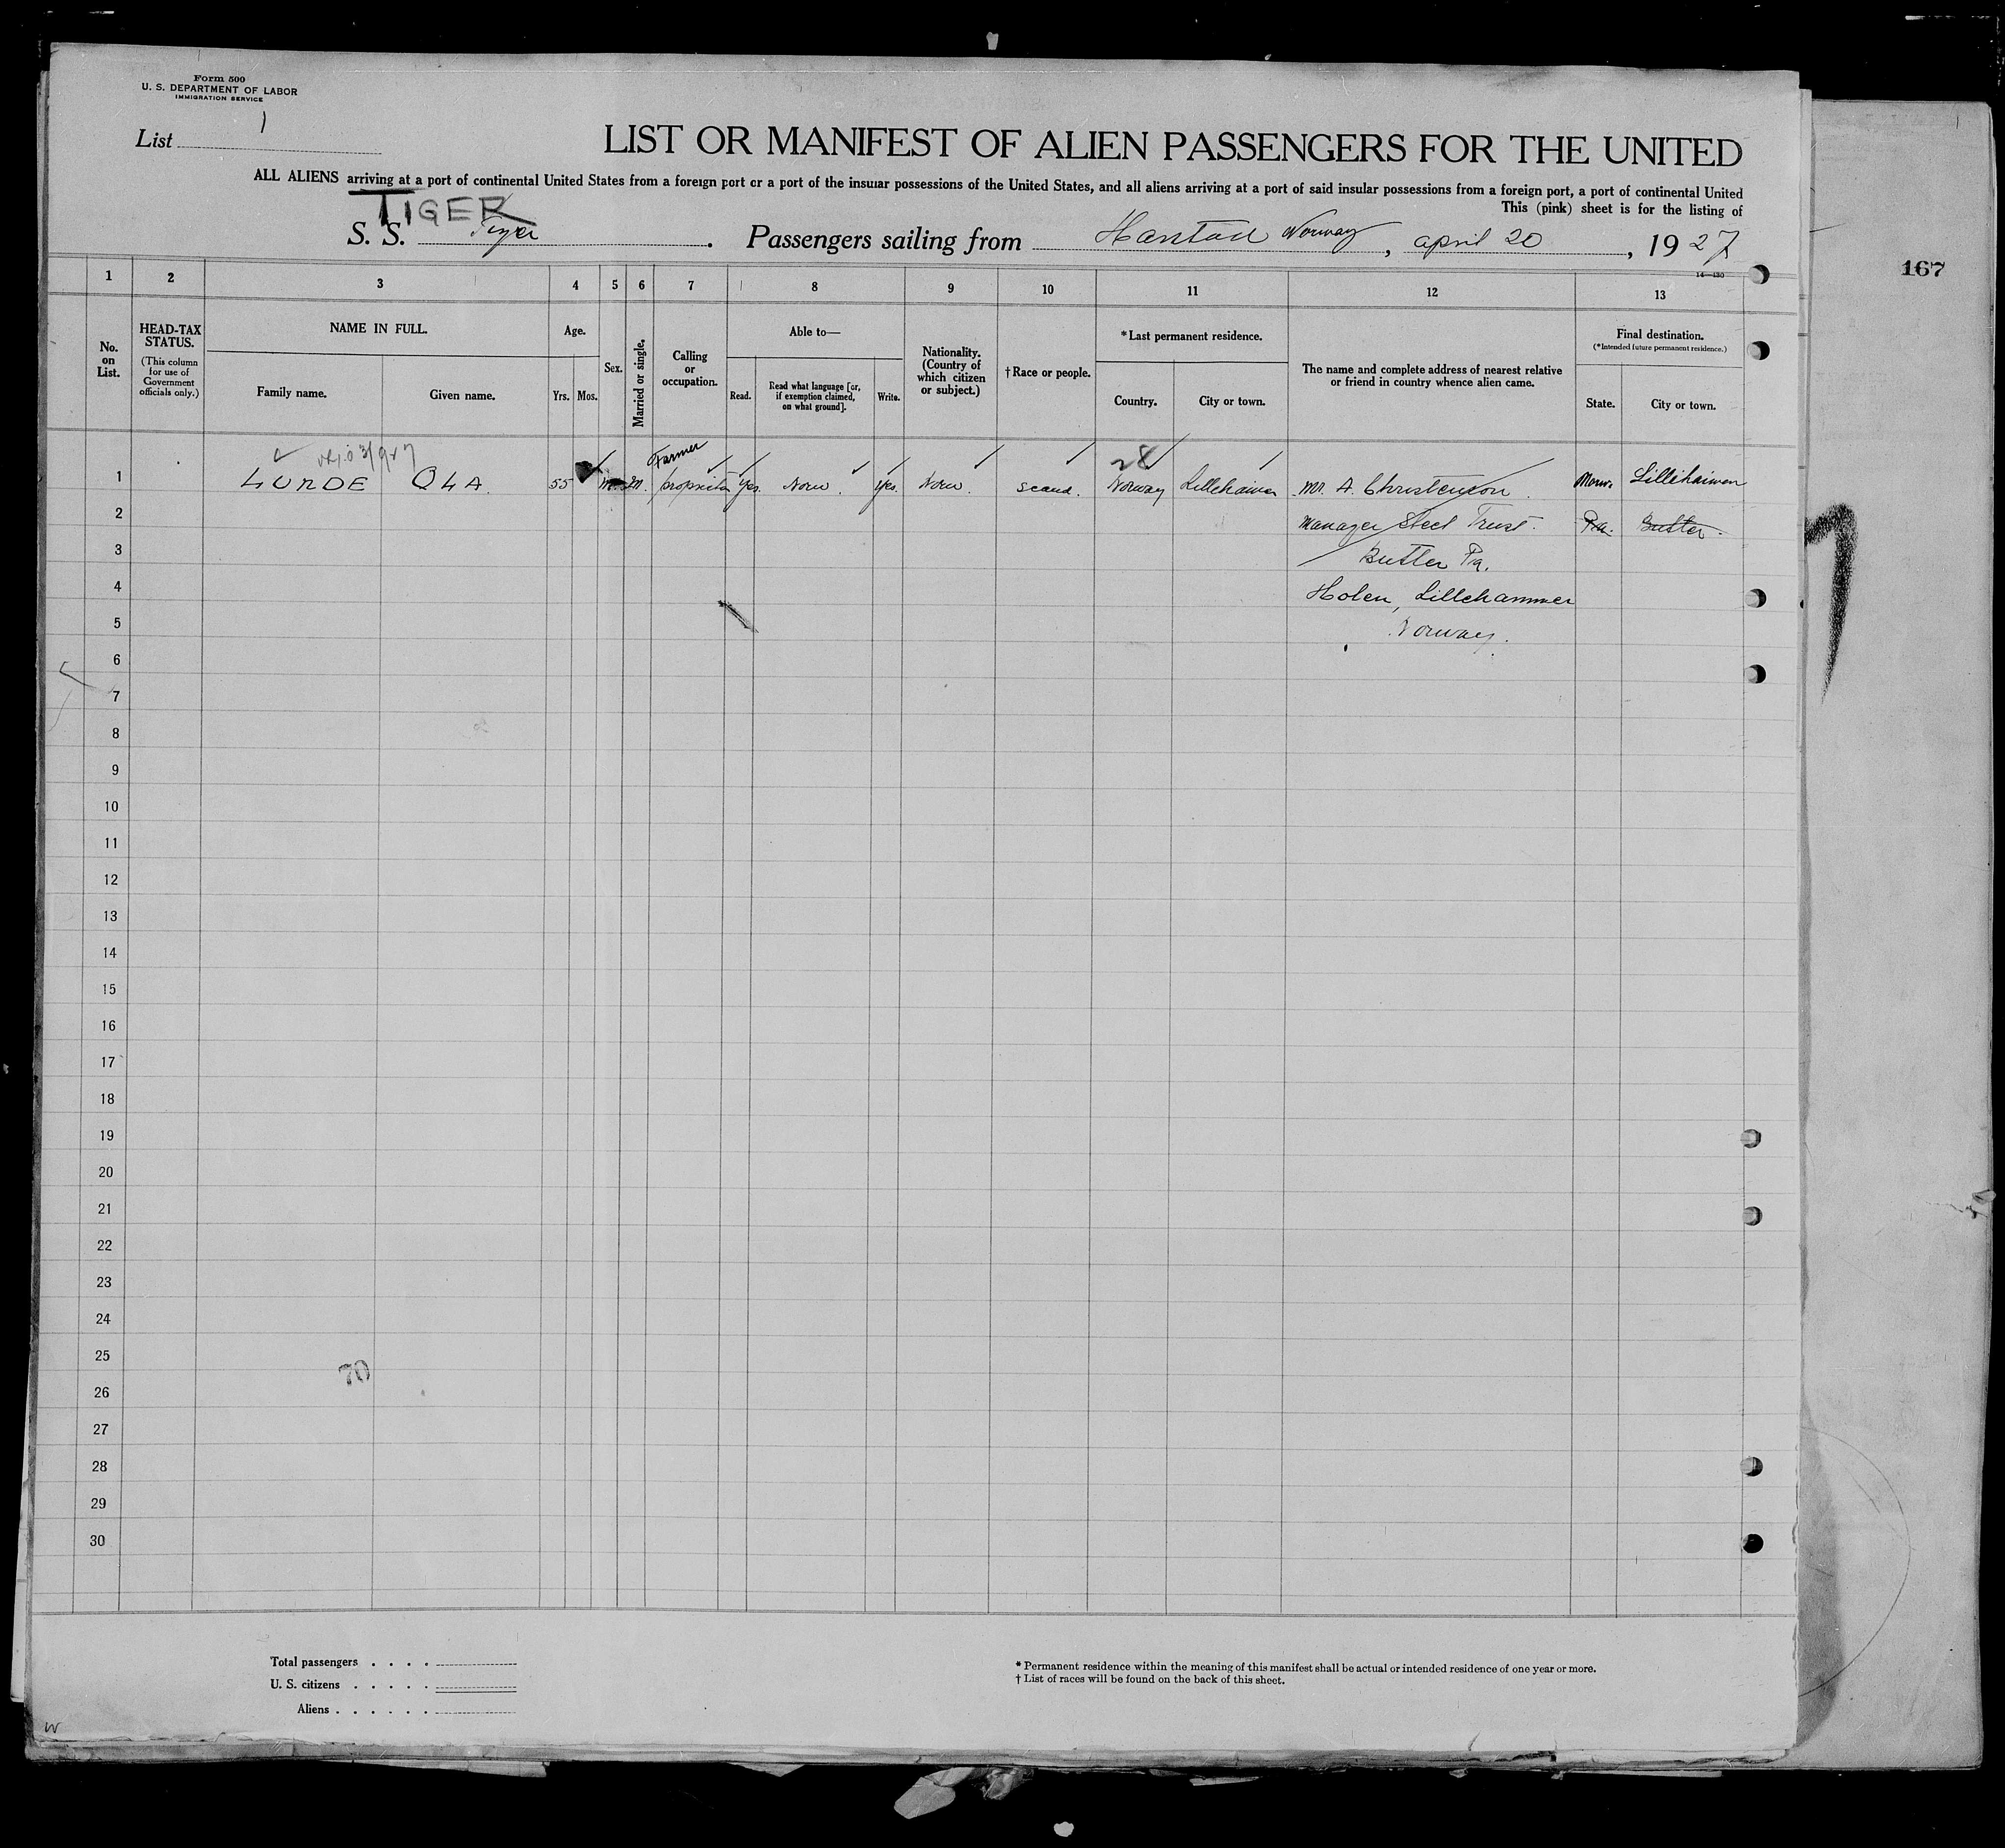 Form 500
U. S. DEPARTMENT OF LABOR
IMMIGRATION SERVICE
List 1
LIST OR MANIFEST OF ALIEN PASSENGERS FOR THE UNITED
ALL ALIENS arriving at a port of continental United States from a foreign port or a port of the insular possessions of the United States, and all aliens arriving at a port of said insular possessions from a foreign port, a port of continental United
This (pink) sheet is for the listing of
TIGER
S. S. Tiger. Passengers sailing from Norway, april 20, 1927
14—430
167
1 2 3 4 5 6 7 8 9 10 11 12 13
No. on List.
HEAD-TAX STATUS.
(This column for use of Government officials only.)
NAME IN FULL.
Family name. Given name.
Age.
Yrs. Mos.
Sex.
Married or single.
Calling or occupation.
Able to—
Read. Read what language [or, if exemption claimed, on what ground]. Write.
Nationality. (Country of which citizen or subject.)
†Race or people.
*Last permanent residence.
Country. City or town.
The name and complete address of nearest relative or friend in country whence alien came.
Final destination.
(*Intended future permanent residence.)
State. City or town.
28
Farmer
1 LURDE OLA. 55 m. m. yes. Norw. yes. Norw. scand. Norway Mr. A. Christenson. Norw.
2 Manager Steel Trust. Pa. Butler.
3 Butler Pa.
4 Holen, Lillehammer
5 Norway.
6
7
8
9
10
11
12
13
14
15
16
17
18
19
20
21
22
23
24
25
70
26
27
28
29
30
Total passengers . . . .
U. S. citizens . . . . .
Aliens . . . . . .
* Permanent residence within the meaning of this manifest shall be actual or intended residence of one year or more.
† List of races will be found on the back of this sheet.
W